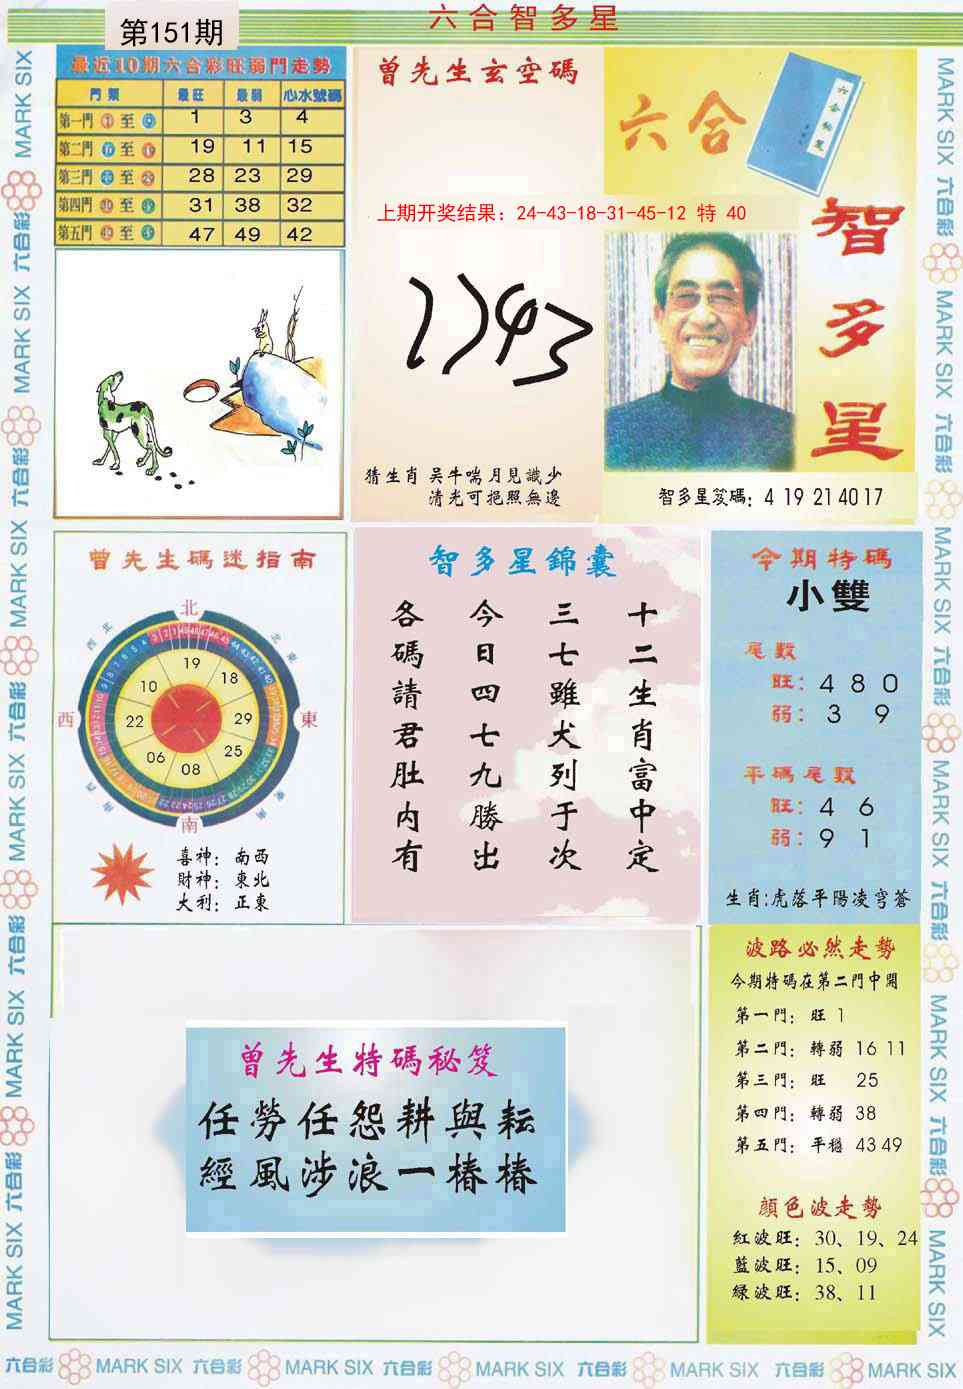 第151期
六合智多星
最近10期六合彩旺弱門走勢
門類 最旺 最弱 心水號碼
第一門 至 1 3 4
第二門 至 19 11 15
第三門 至 28 23 29
第四門 至 31 38 32
第五門 至 47 49 42
曾先生玄空碼
上期开奖结果：24-43-18-31-45-12 特 40
猜生肖 吴牛喘月見識少
清光可挹照無邊
六合
智多星
智多星笈碼：4 19 21 40 17
曾先生碼迷指南
北
西北
東北
19
18
10
29
22
25
06
08
西
東
南
喜神：南西
財神：東北
大利：正東
智多星錦囊
十二生肖富中定
三七雖犬列于次
今日四七九勝出
各碼請君肚内有
今期特碼
小雙
尾數
旺：4 8 0
弱：3 9
平碼尾數
旺：4 6
弱：9 1
生肖:虎落平陽凌穹蒼
曾先生特碼秘笈
任勞任怨耕與耘
經風涉浪一樁樁
波路必然走勢
今期特碼在第二門中開
第一門：旺 1
第二門：轉弱 16 11
第三門：旺 25
第四門：轉弱 38
第五門：平穩 43 49
顔色波走勢
紅波旺：30、19、24
藍波旺：15、09
綠波旺：38、11
六合彩 MARK SIX 六合彩 MARK SIX 六合彩 MARK SIX 六合彩 MARK SIX 六合彩 MARK SIX